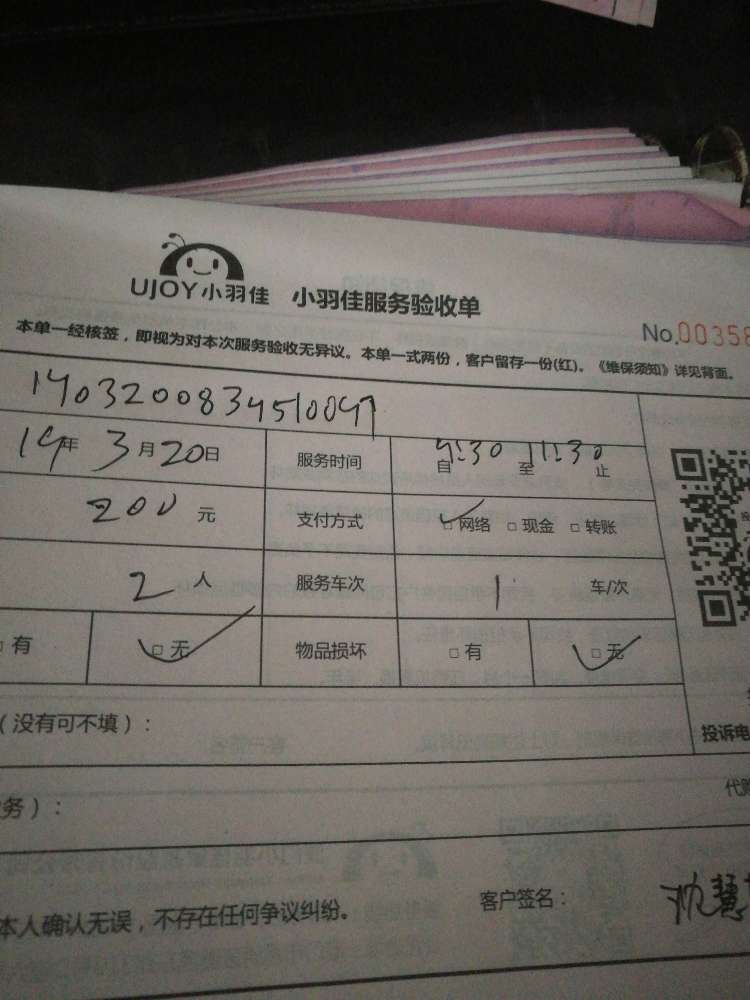 UJOY小羽佳 小羽佳服务验收单
No.00358
本单一经核签，即视为对本次服务验收无异议。本单一式两份，客户留存一份(红)。《维保须知》详见背面。
19年 3月20日 服务时间 自 9:30 至 11:30 止
200 元 支付方式 □网络 □现金 □转账
2 人 服务车次 1 车/次
□有 □无 物品损坏 □有 □无
（没有可不填）：
投诉电
务）：
代
客户签名：
本人确认无误，不存在任何争议纠纷。